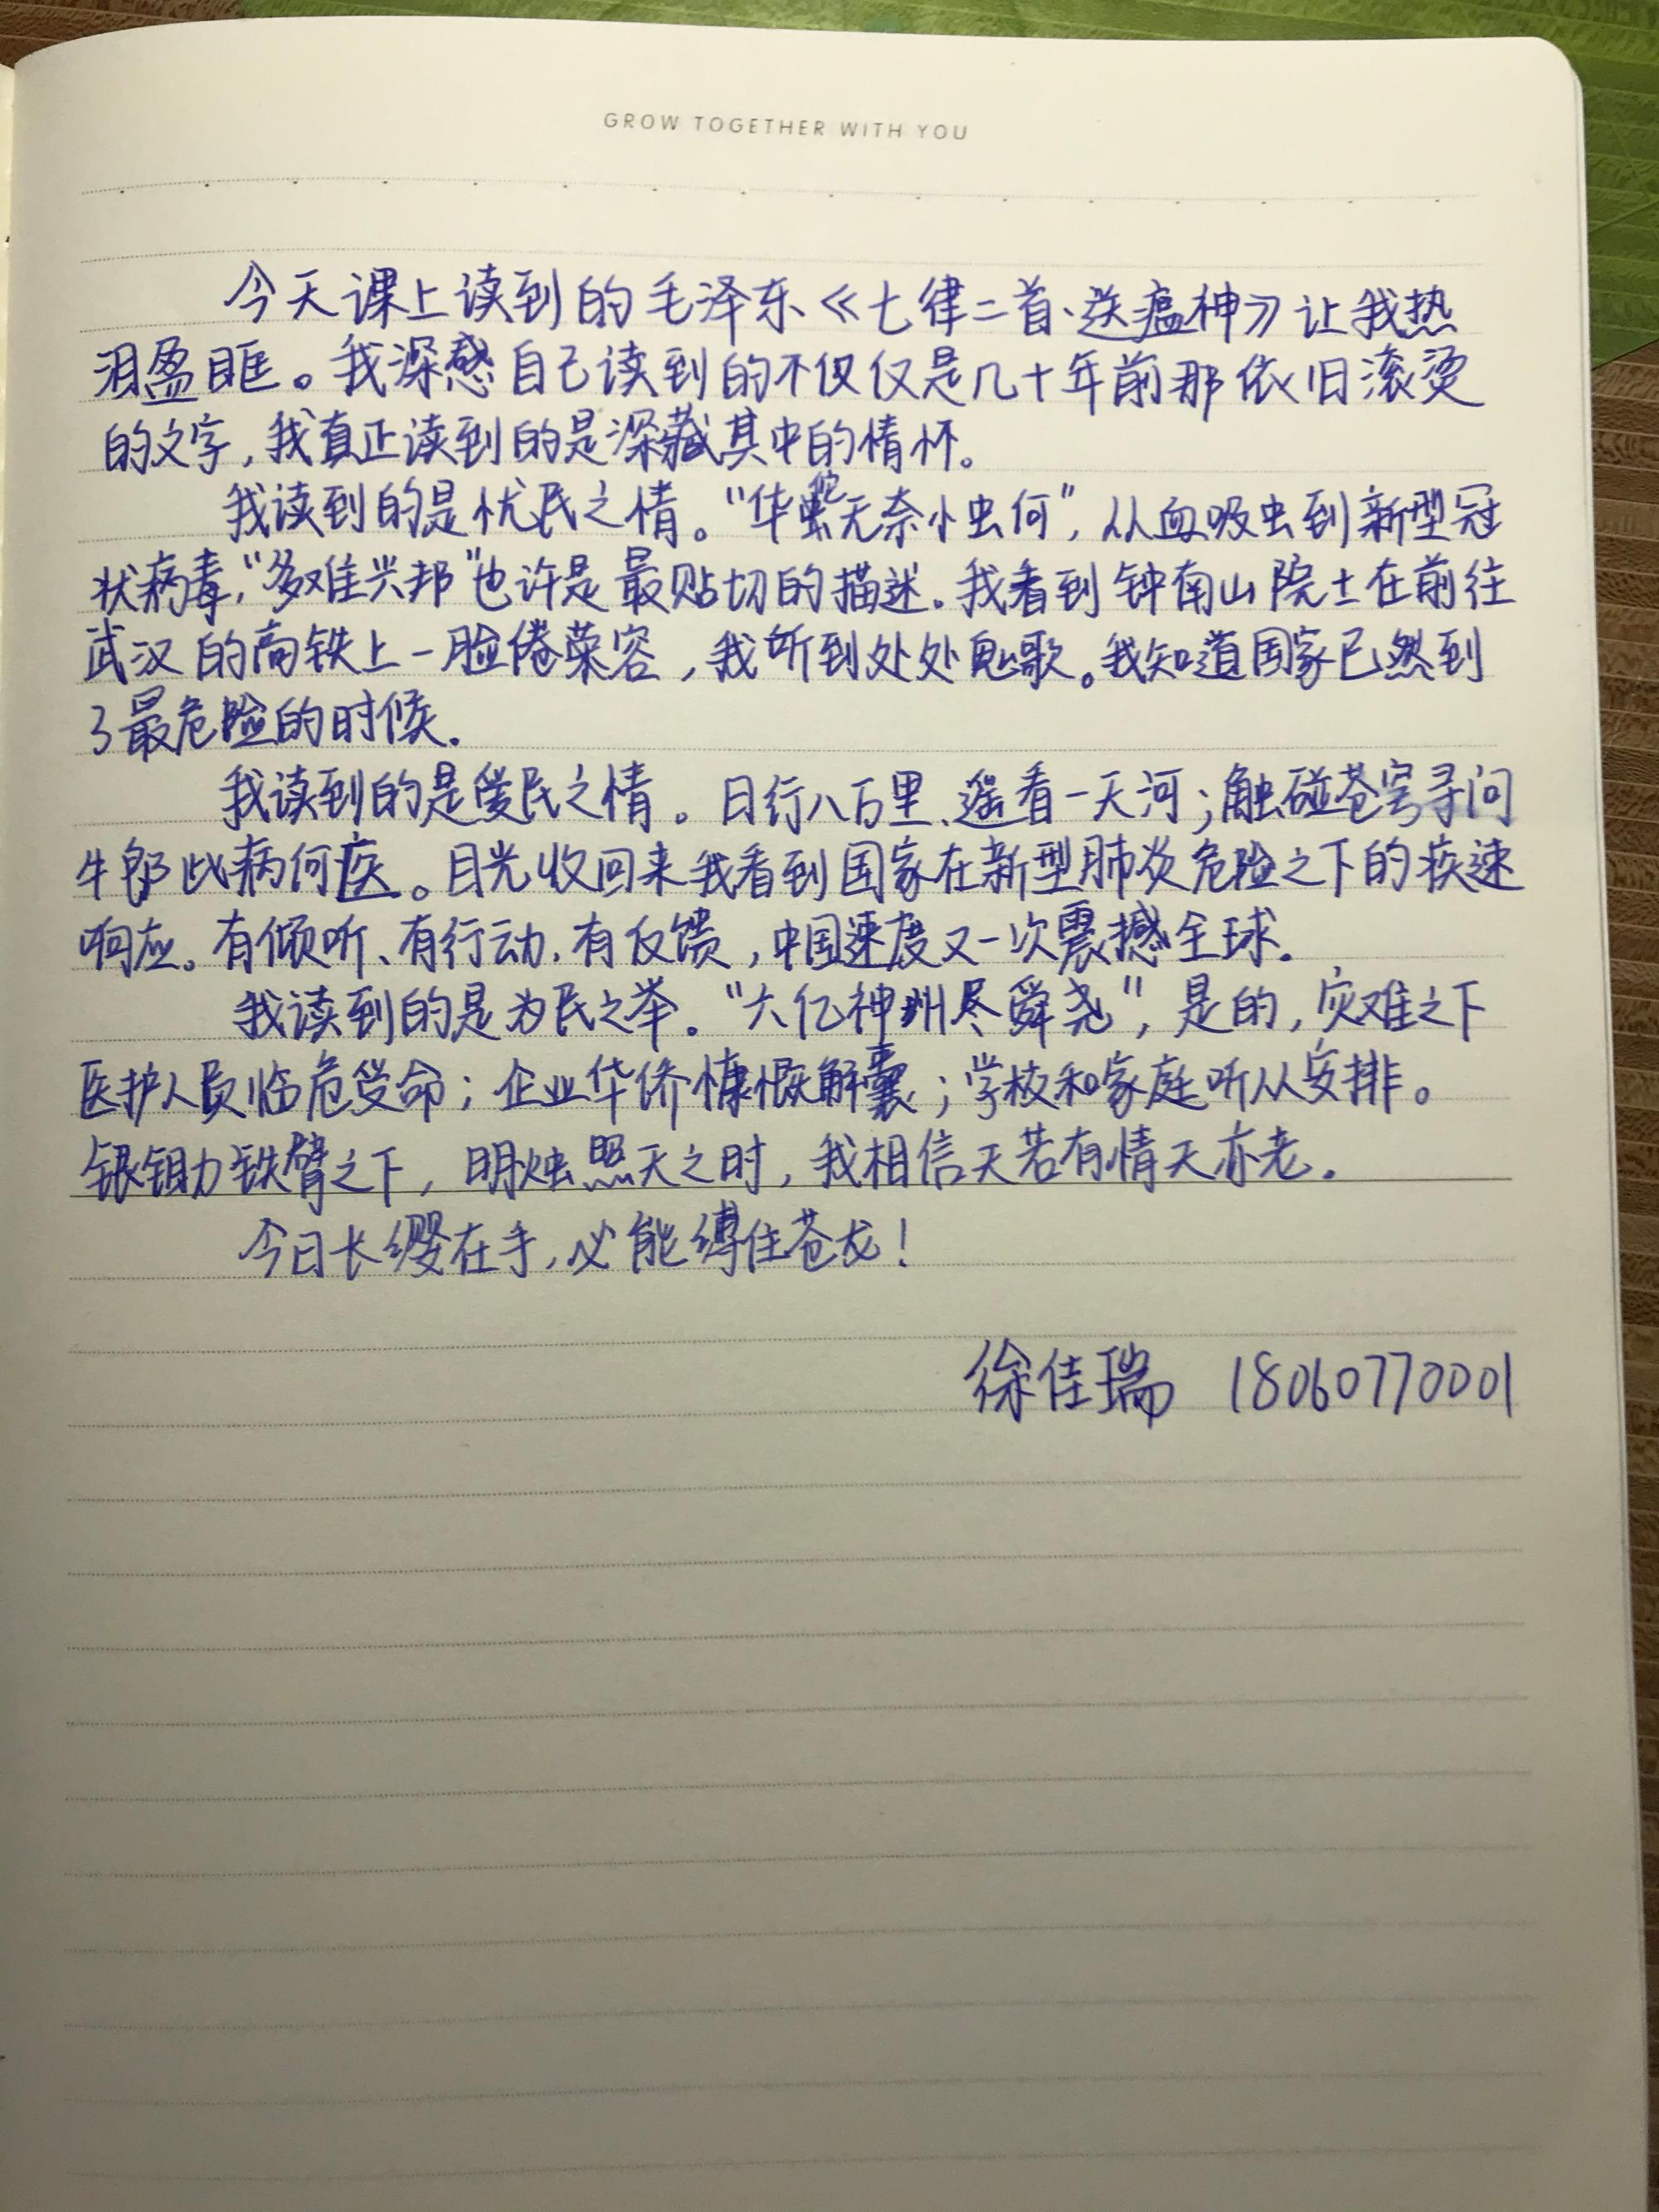 GROW TOGETHER WITH YOU
今天课上读到的毛泽东《七律二首·送瘟神》让我热
泪盈眶。我深感自己读到的不仅仅是几十年前那依旧滚烫
的文字,我真正读到的是深藏其中的情怀。
我读到的是忧民之情。“华佗无奈小虫何”,从血吸虫到新型冠
状病毒,“多难兴邦”也许是最贴切的描述。我看到钟南山院士在前往
武汉的高铁上一脸倦容,我听到处处鬼歌。我知道国家已然到
了最危险的时候.
我读到的是爱民之情。日行八万里、遥看一天河;触碰苍穹寻问
牛郎此病何医。目光收回来我看到国家在新型肺炎危险之下的疾速
响应。有倾听、有行动,有反馈,中国速度又一次震撼全球.
我读到的是为民之举。“六亿神州尽舜尧”,是的,灾难之下
医护人员临危受命;企业华侨慷慨解囊;学校和家庭听从安排。
银锄铁臂之下,明烛照天之时,我相信天若有情天亦老.
今日长缨在手,必能缚住苍龙!
徐佳瑞 18060770001